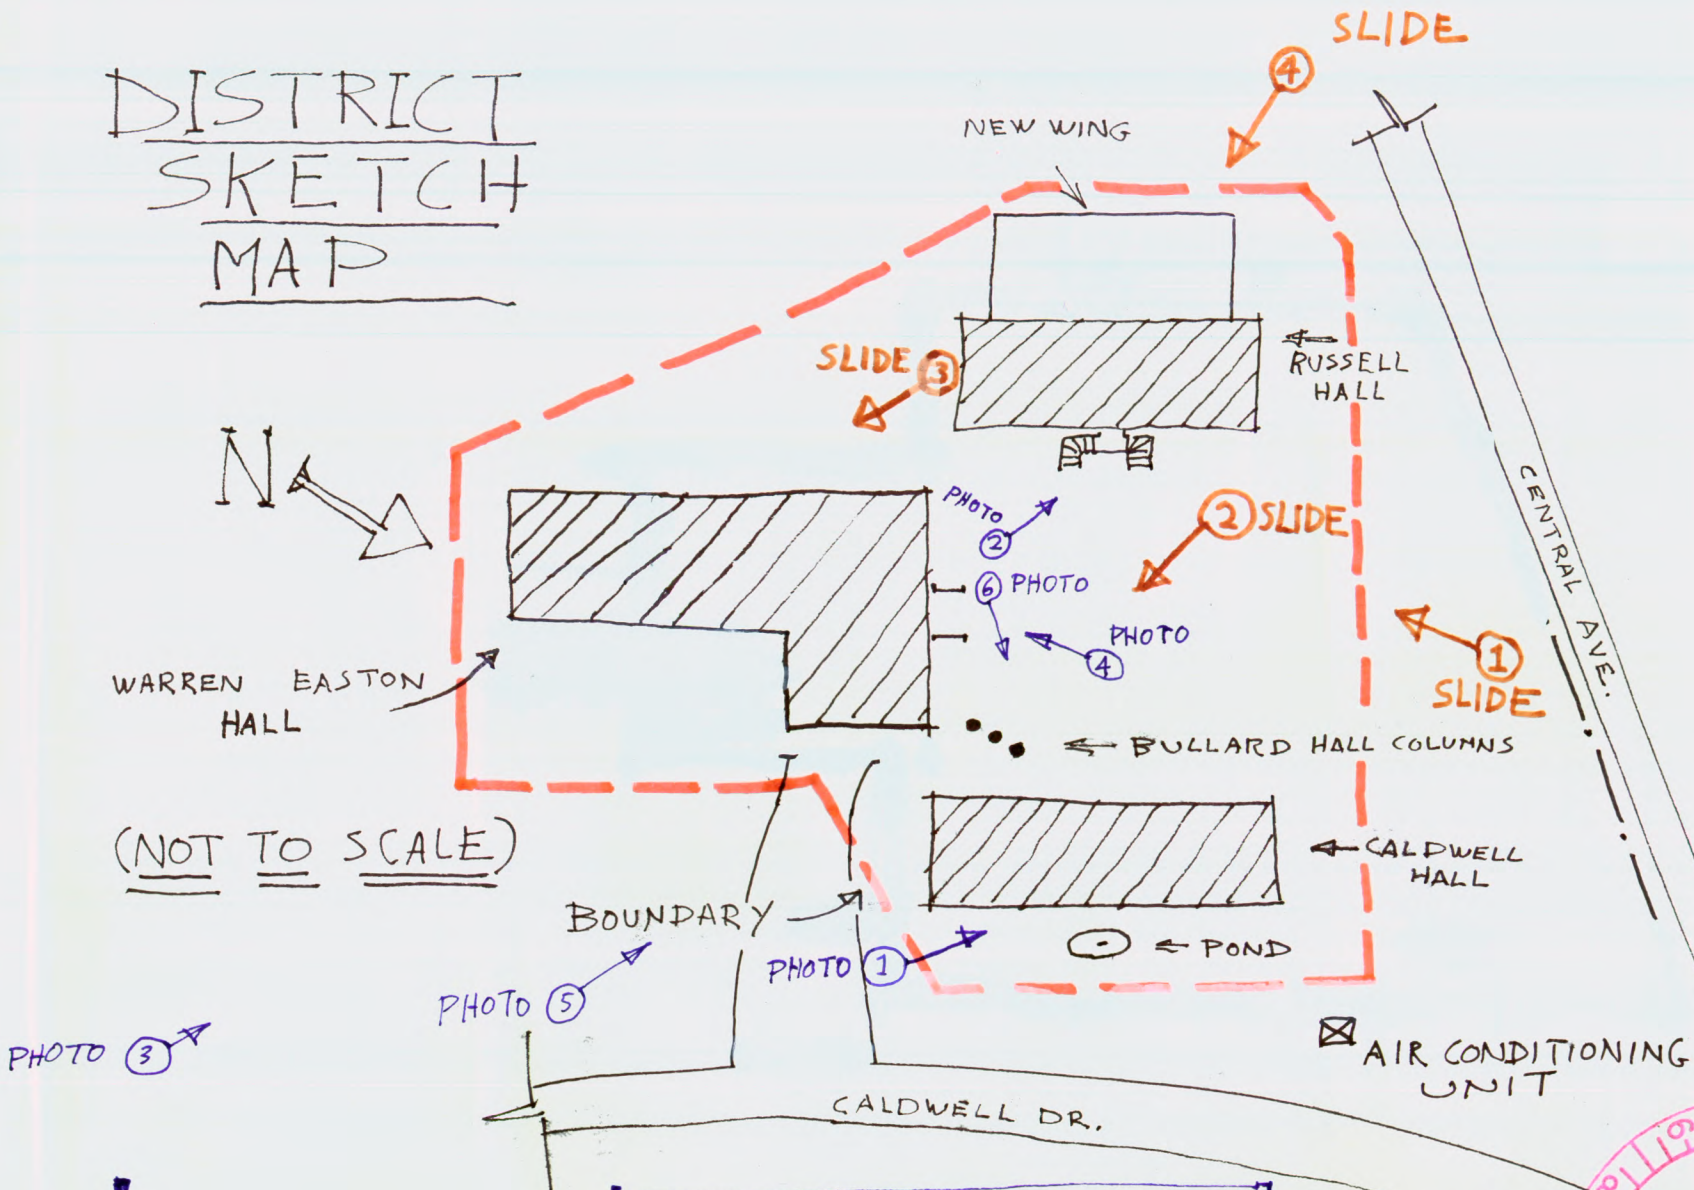 DISTRICT
SKETCH
MAP
SLIDE
4
NEW WING
SLIDE 3
RUSSELL
HALL
N
PHOTO
2
2 SLIDE
6 PHOTO
PHOTO
4
CENTRAL AVE.
1
SLIDE
WARREN EASTON
HALL
BULLARD HALL COLUMNS
(NOT TO SCALE)
CALDWELL
HALL
BOUNDARY
POND
PHOTO 1
PHOTO 5
PHOTO 3
AIR CONDITIONING
UNIT
CALDWELL DR.